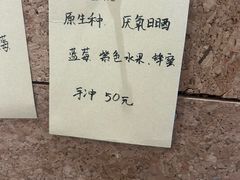 原生种 厌氧日晒
蓝莓.紫色水果.蜂蜜
手冲 50元
莓